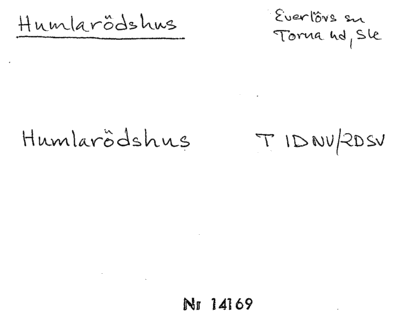 Humlarödshus
Everlövs sn
Torna hd, Skе
Humlarödshus
T 1D NV/2D SV
Nr 14169